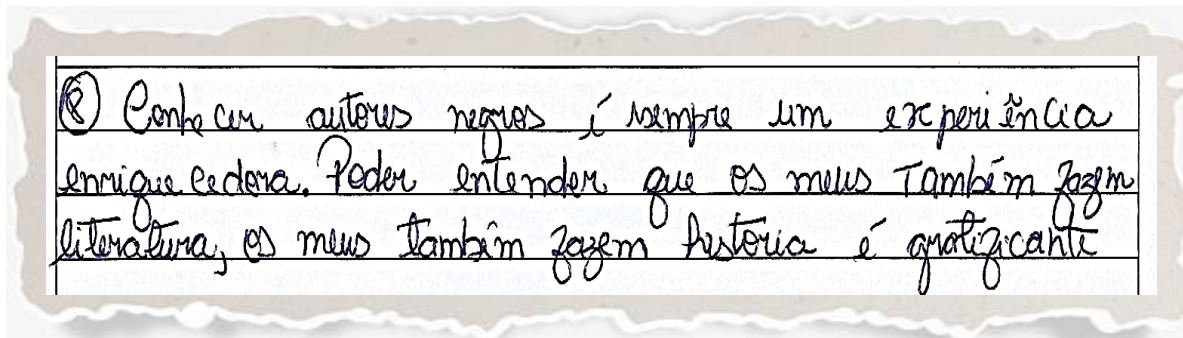 8 Conhecer autores negros é sempre um experiência
enriquecedora. Poder entender que os meus também fazem
literatura, os meus também fazem história é gratificante